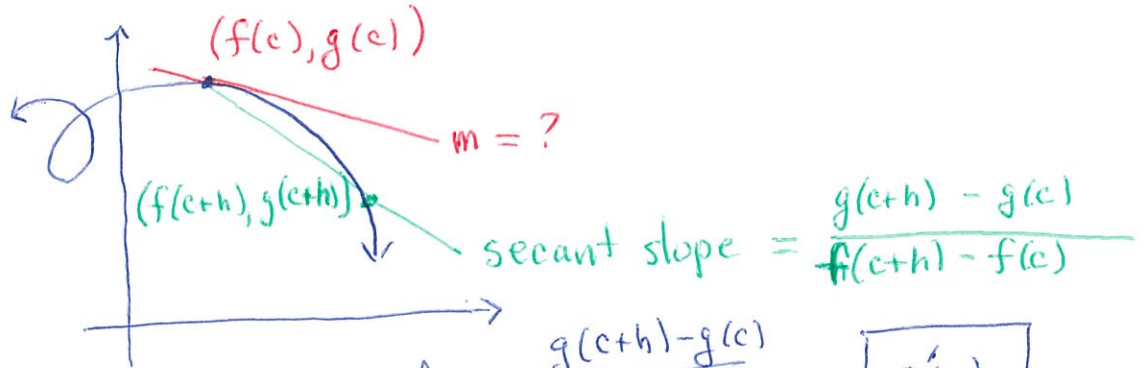 (f(c), g(c))
m = ?
(f(c+h), g(c+h))
secant slope = g(c+h) - g(c) / f(c+h) - f(c)
g(c+h)-g(c)